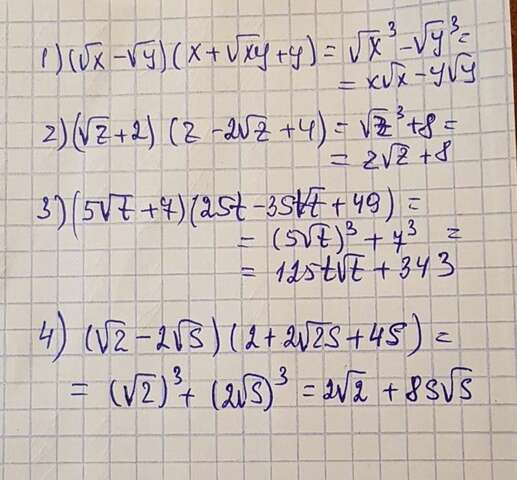 1) (√x - √y) (x + √xy + y) = √x³ - √y³ =
= x√x - y√y
2) (√z + 2) (z - 2√z + 4) = √z³ + 8 =
= z√z + 8
3) (5√t + 7) (25t - 35√t + 49) =
= (5√t)³ + 7³ =
= 125t√t + 343
4) (√2 - 2√s) (2 + 2√2s + 4s) =
= (√2)³ + (2√s)³ = 2√2 + 8s√s